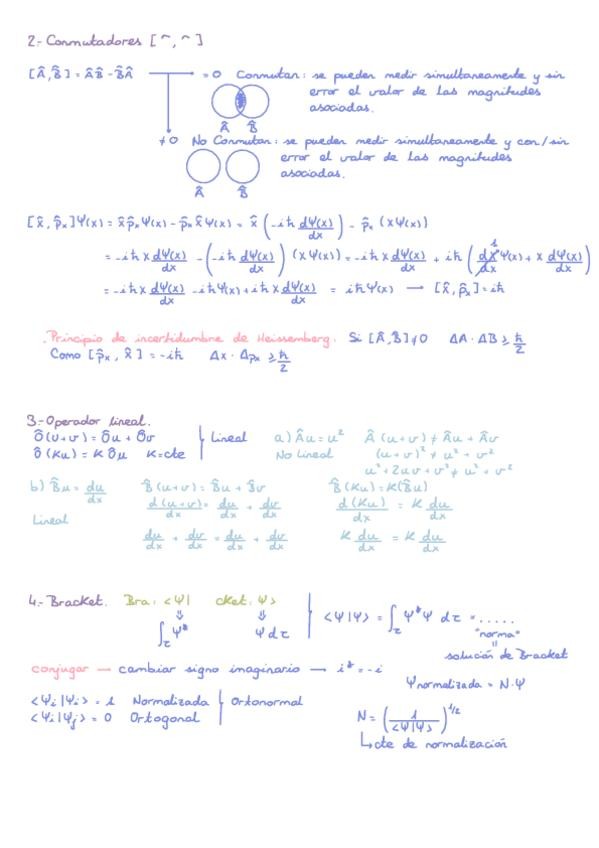 2.- Conmutadores [ ^ , ^ ]
[Â,B̂] = ÂB̂ - B̂Â → = 0 Conmutan: se pueden medir simultaneamente y sin
error el valor de las magnitudes
asociadas.
Â B̂
≠ 0 No Conmutan: se pueden medir simultaneamente y con/sin
error el valor de las magnitudes
asociadas.
Â B̂
[x̂, p̂x]Ψ(x) = x̂p̂xΨ(x) - p̂x x̂Ψ(x) = x̂ (-iħ dΨ(x)/dx) - p̂x (xΨ(x))
= -iħ x dΨ(x)/dx - (-iħ dΨ(x)/dx) (xΨ(x)) = -iħ x dΨ(x)/dx + iħ (dx/dx 1 Ψ(x) + x dΨ(x)/dx)
= -iħ x dΨ(x)/dx - iħΨ(x) + iħ x dΨ(x)/dx = iħΨ(x) → [x̂, p̂x] = iħ
Principio de incertidumbre de Heissemberg. Si [Â,B̂] ≠ 0 ΔA · ΔB ≥ ħ/2
Como [p̂x, x̂] = -iħ Δx · Δpx ≥ ħ/2
3.- Operador lineal.
Ô(u+v) = Ôu + Ôv
Ô(Ku) = K Ôu K=cte
Lineal
a) Âu = u² Â(u+v) ≠ Âu + Âv
No Lineal (u+v)² ≠ u² + v²
u² + 2uv + v² ≠ u² + v²
b) B̂u = du/dx B̂(u+v) = B̂u + B̂v B̂(Ku) = K(B̂u)
Lineal d(u+v)/dx = du/dx + dv/dx d(Ku)/dx = K du/dx
du/dx + dv/dx = du/dx + dv/dx K du/dx = K du/dx
4.- Bracket. Bra: <Ψ| cket: Ψ>
⇓ ⇓
∫τ Ψ* Ψ dτ
<Ψ|Ψ> = ∫τ Ψ*Ψ dτ = .....
"norma"
=
solución de Bracket
conjugar → cambiar signo imaginario → i* = -i
Ψnormalizada = N·Ψ
<Ψi|Ψi> = 1 Normalizada
<Ψi|Ψj> = 0 Ortogonal
Ortonormal
N = (1/<Ψ|Ψ>)^1/2
↳ cte de normalización